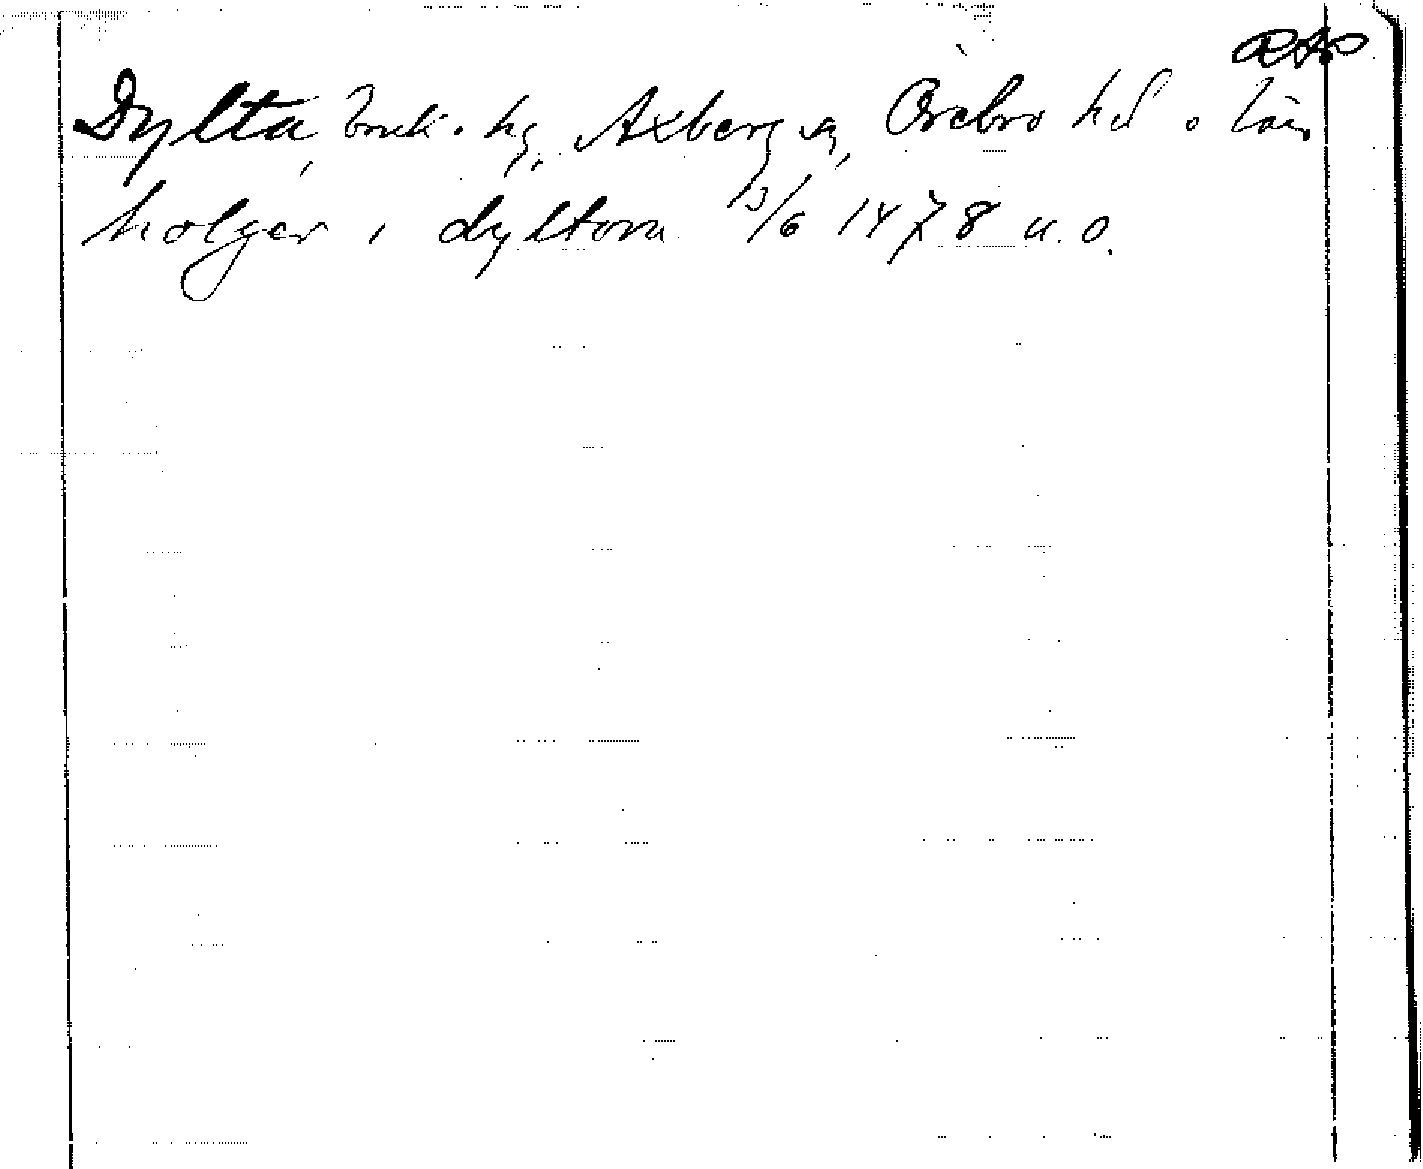 RAP
Dylta, bruk o. hg., Axberg sn, Örebro hd o. län
holger i dyltom 13/6 1478 u. o.